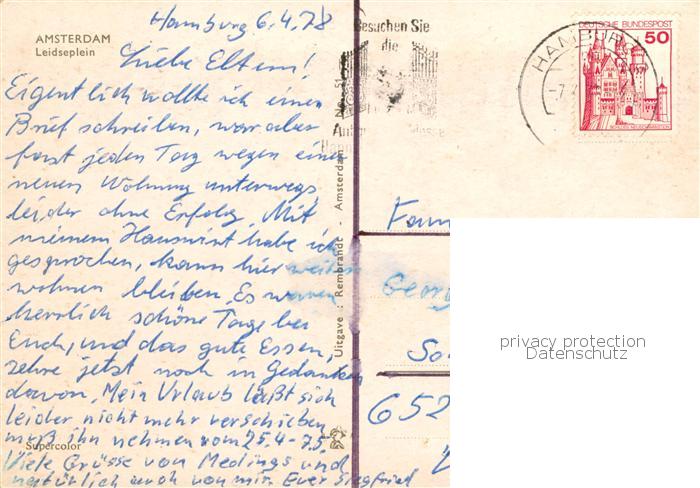 AMSTERDAM
Leidseplein
Hamburg 6.4.78
Liebe Eltern!
Eigentlich wollte ich einen
Brief schreiben, war aber
fast jeden Tag wegen einer
neuen Wohnung unterwegs,
leider ohne Erfolg. Mit
meinem Hauswirt habe ich
gesprochen, kann hier weiter
wohnen bleiben. Es waren
herrlich schöne Tage bei
Euch, und das gute Essen,
zehre jetzt noch in Gedanken
davon. Mein Urlaub läßt sich
leider nicht mehr verschieben
muß ihn nehmen vom 25.4-7.5.
Viele Grüsse von Medings und
natürlich auch von mir Euer Siegfried
Supercolor
Uitgave : Rembrandt - Amsterdam
Besuchen Sie
die
HAMBURG
DEUTSCHE BUNDESPOST
50
Fam
Georg
So
652
privacy protection
Datenschutz